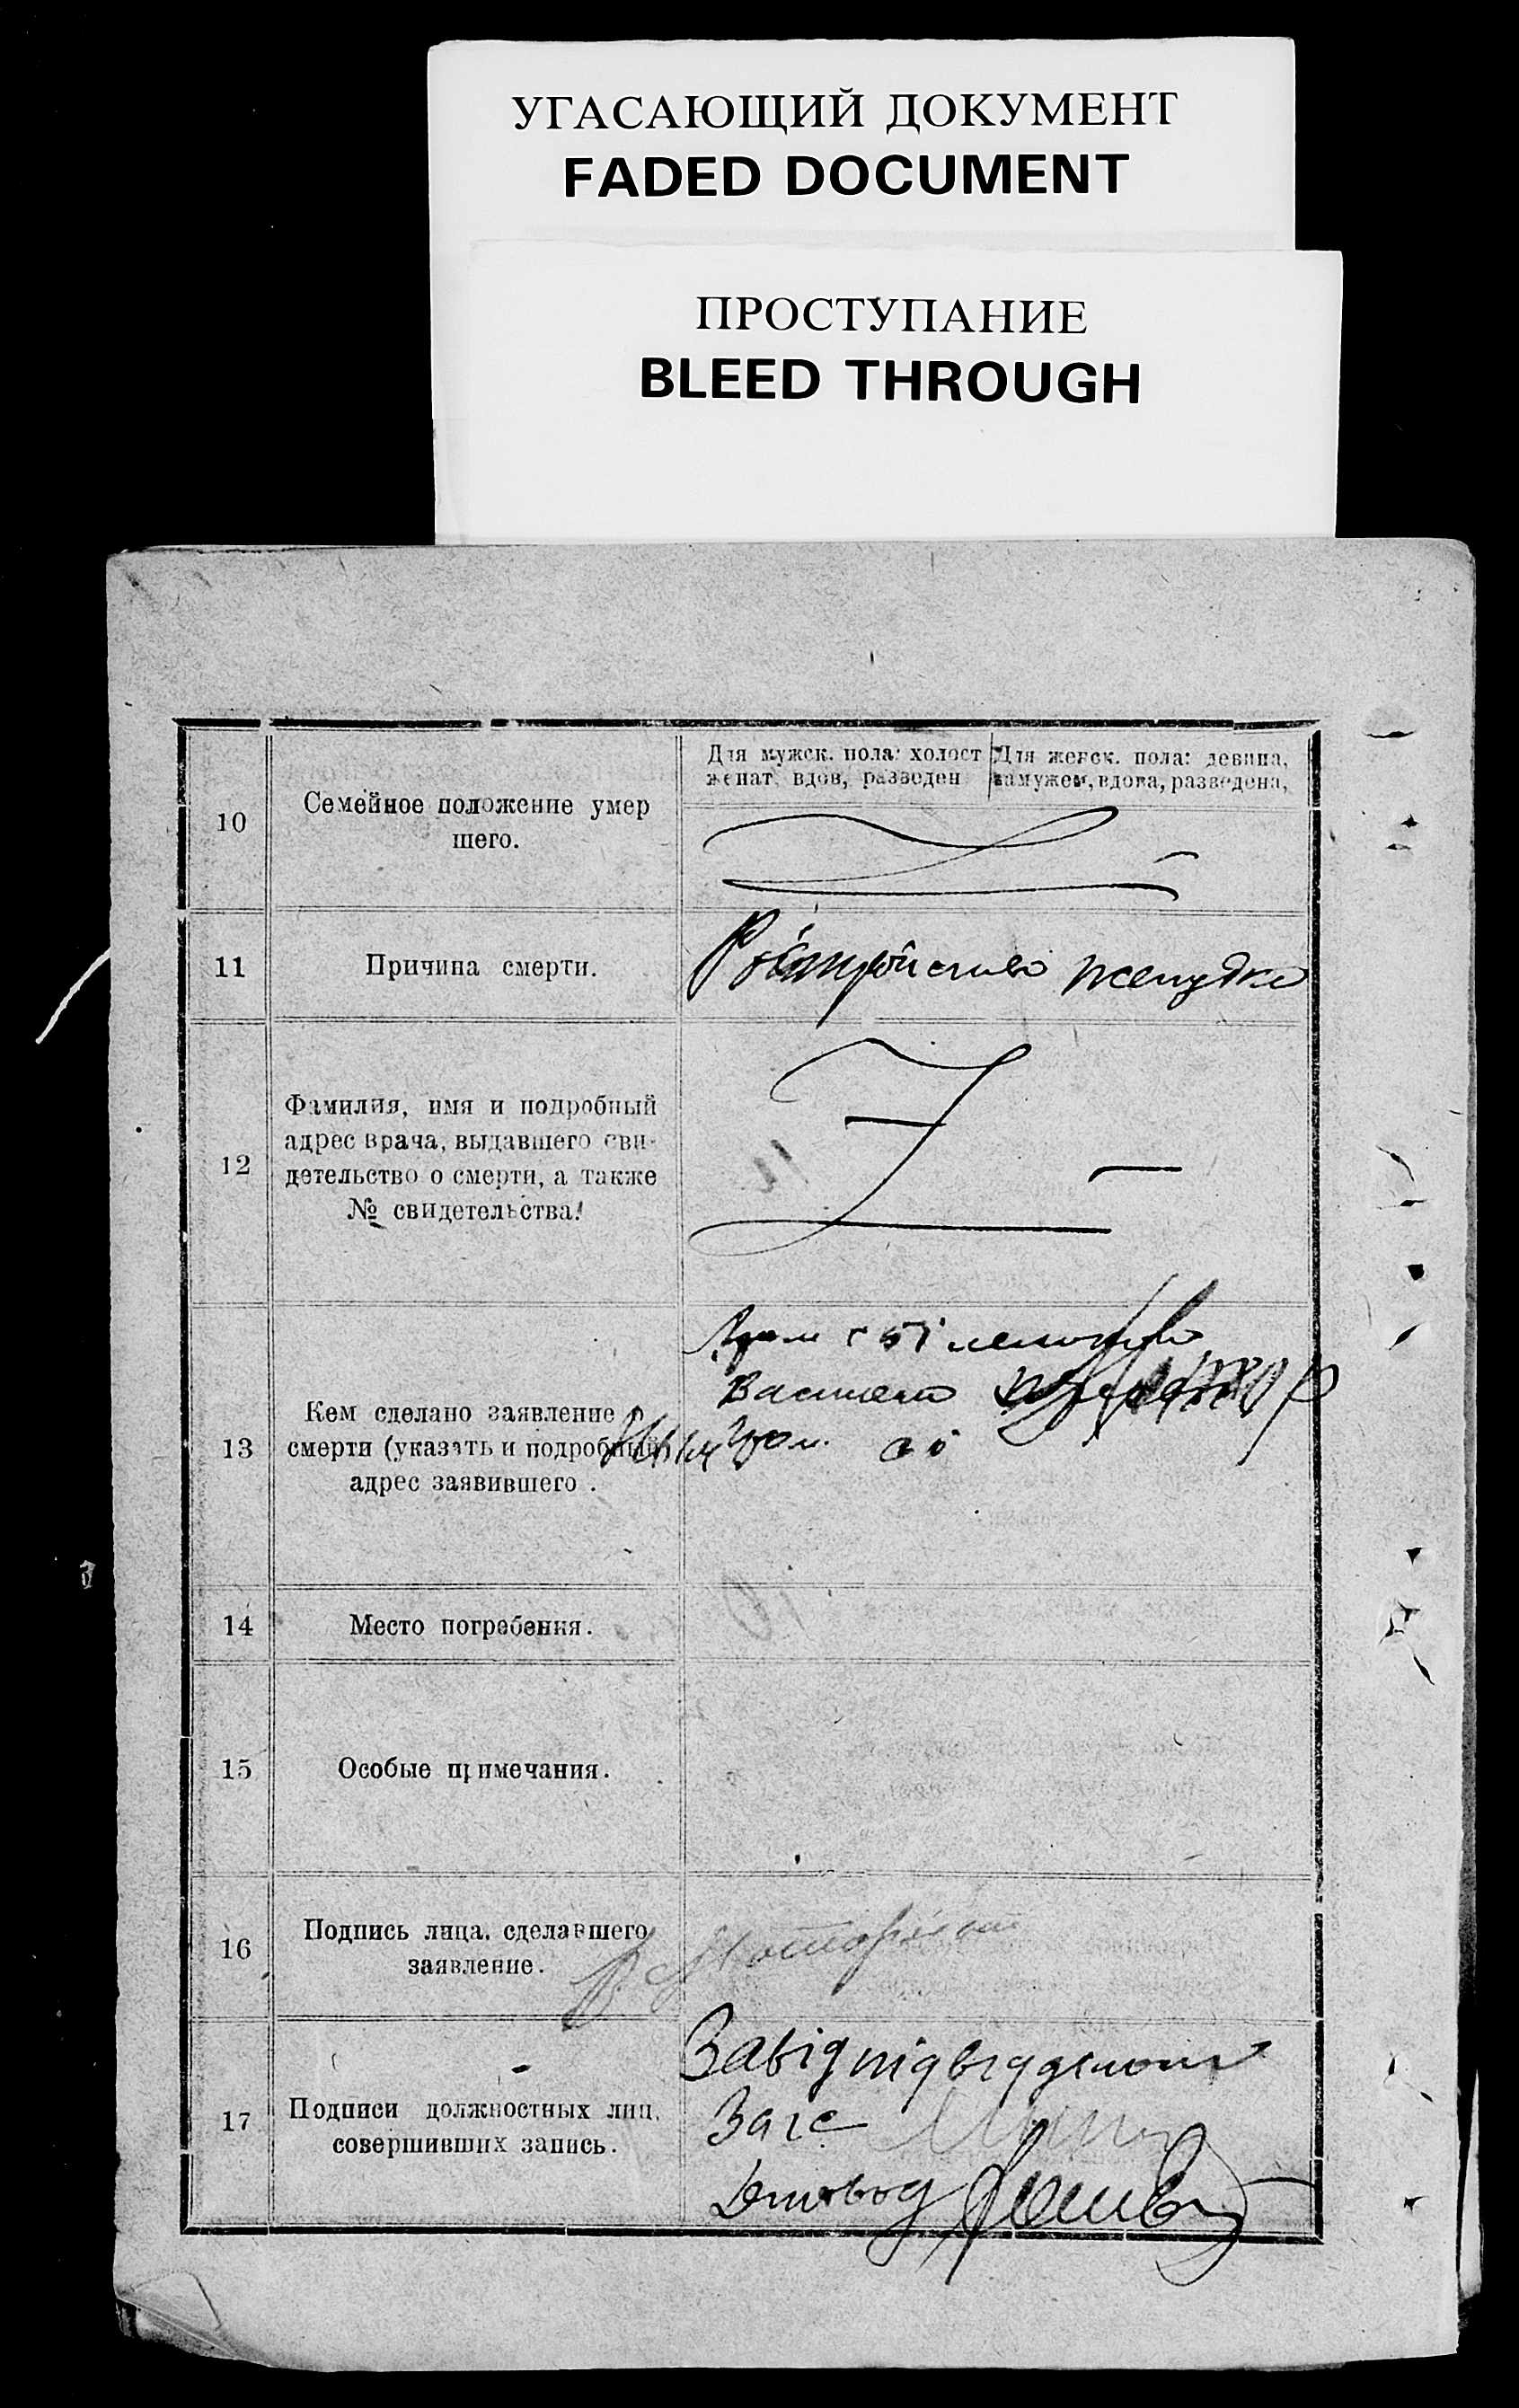 УГАСАЮЩИЙ ДОКУМЕНТ
FADED DOCUMENT
ПРОСТУПАНИЕ
BLEED THROUGH
Для мужск. пола: холост
женат, вдов, разведен
Для женск. пола: девица,
замужем, вдова, разведена,
10
Семейное положение умер
шего.
11
Причина смерти.
Росстройство желудка
12
Фамилия, имя и подробный
адрес врача, выдавшего сви-
детельство о смерти, а также
№ свидетельства.
13
Кем сделано заявление о
смерти (указать и подробный
адрес заявившего .
14
Место погребения.
15
Особые примечания.
16
Подпись лица, сделавшего
заявление.
17
Подписи должностных лиц,
совершивших запись.
Завід
Загс
Діловод